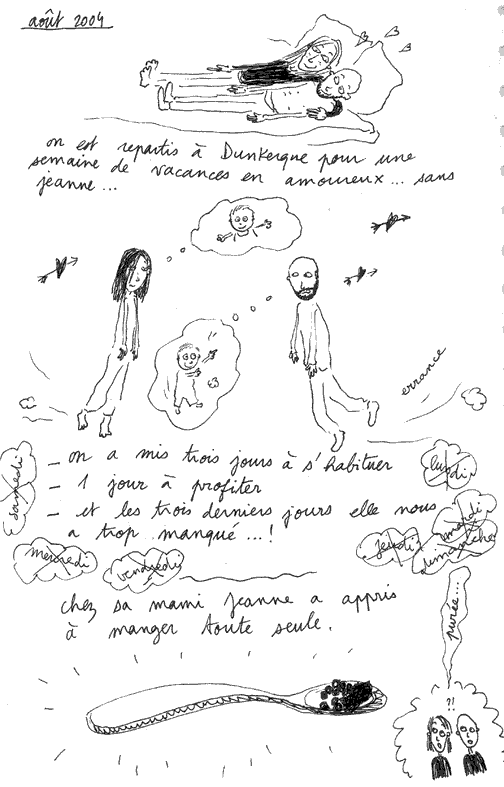 août 2004
on est repartis à Dunkerque pour une
semaine de vacances en amoureux... sans
jeanne...
errance
samedi
- on a mis trois jours à s'habituer
- 1 jour à profiter
- et les trois derniers jours elle nous
a trop manqué...!
lundi
mardi
dimanche
jeudi
mercredi
vendredi
chez sa mami jeanne a appris
à manger toute seule.
purée...
?!